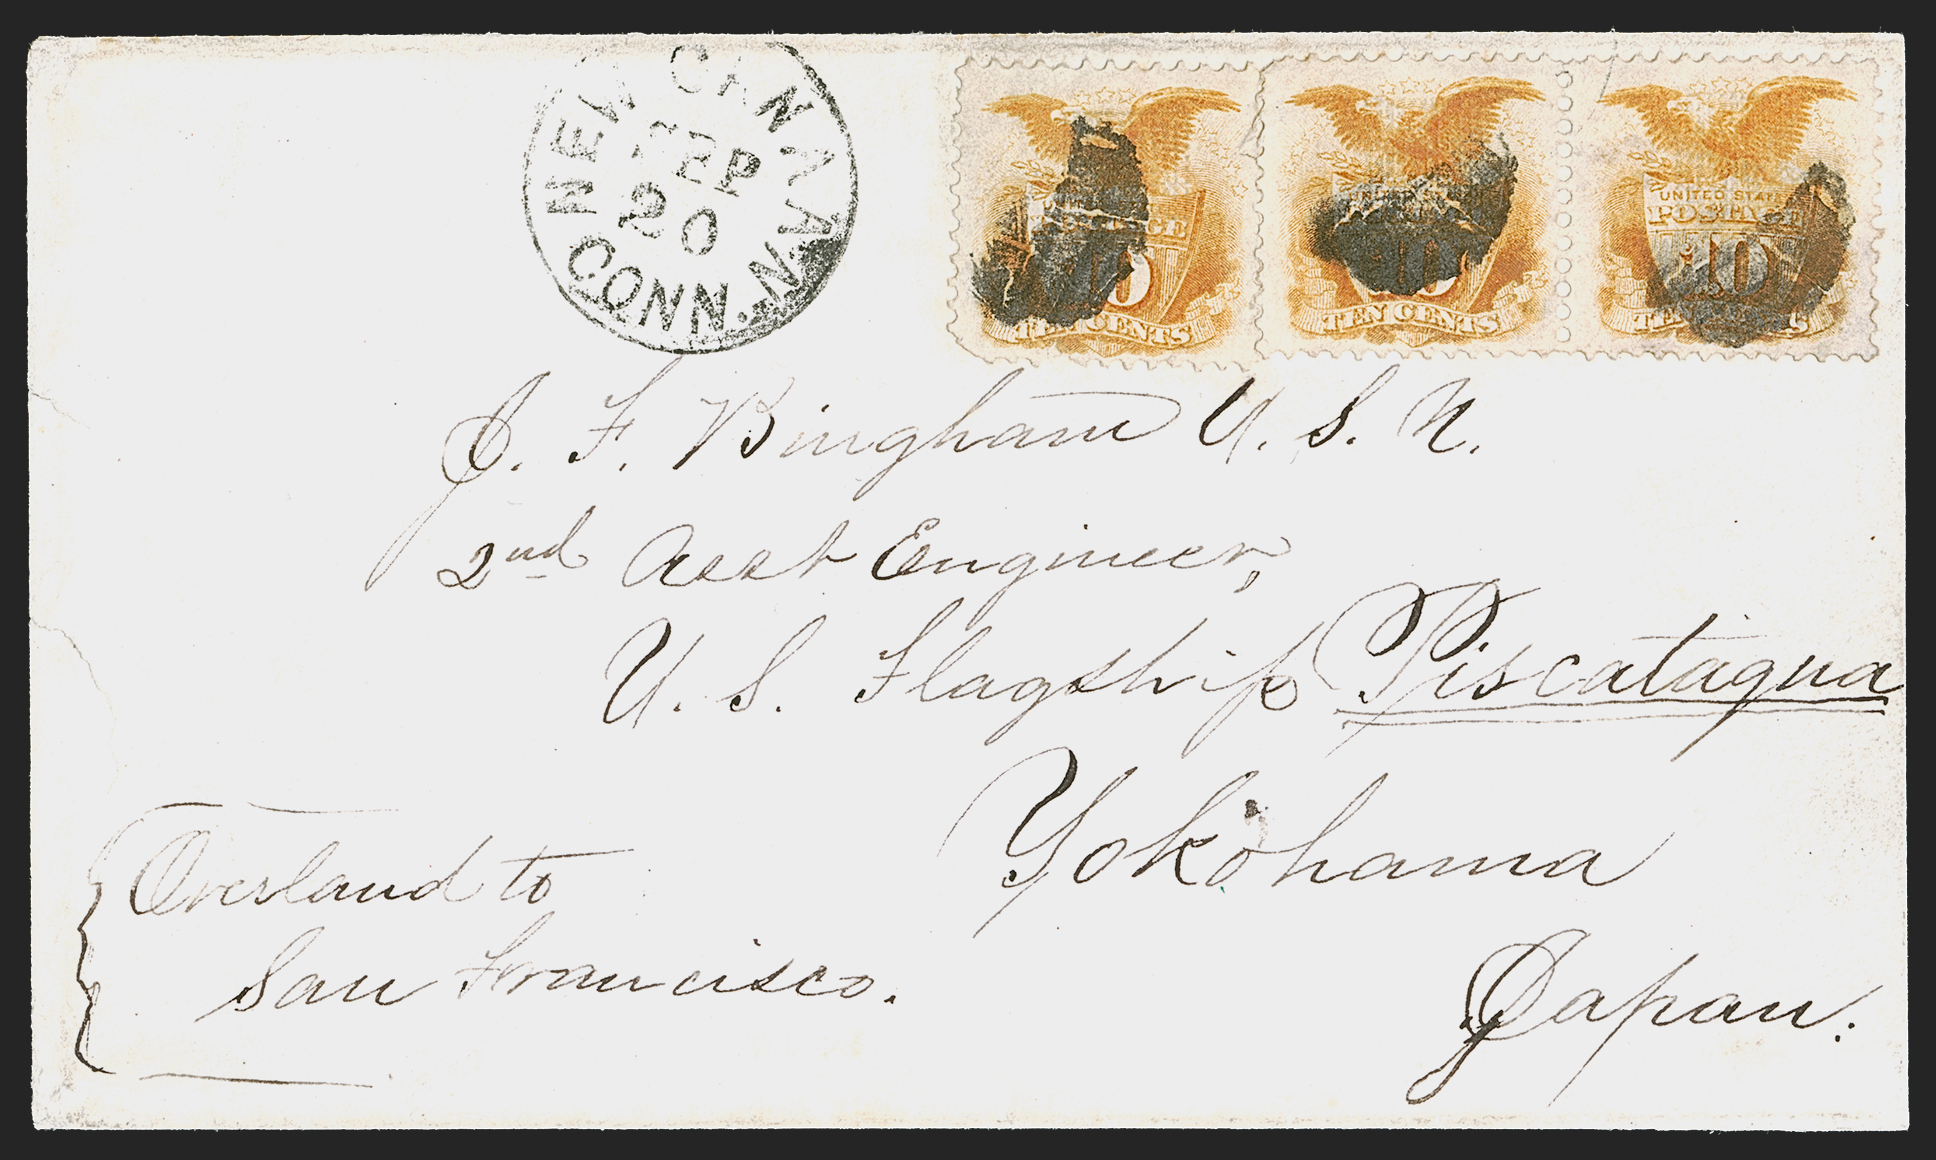 NEW CANAAN
SEP
20
CONN.
POSTAGE
10
TEN CENTS
10
TEN CENTS
UNITED STATES
POSTAGE
10
TEN CENTS
J. F. Bingham U. S. N.
2nd Asst Engineer,
U. S. Flagship Piscataqua
Yokohama
Japan.
Overland to
San Francisco.